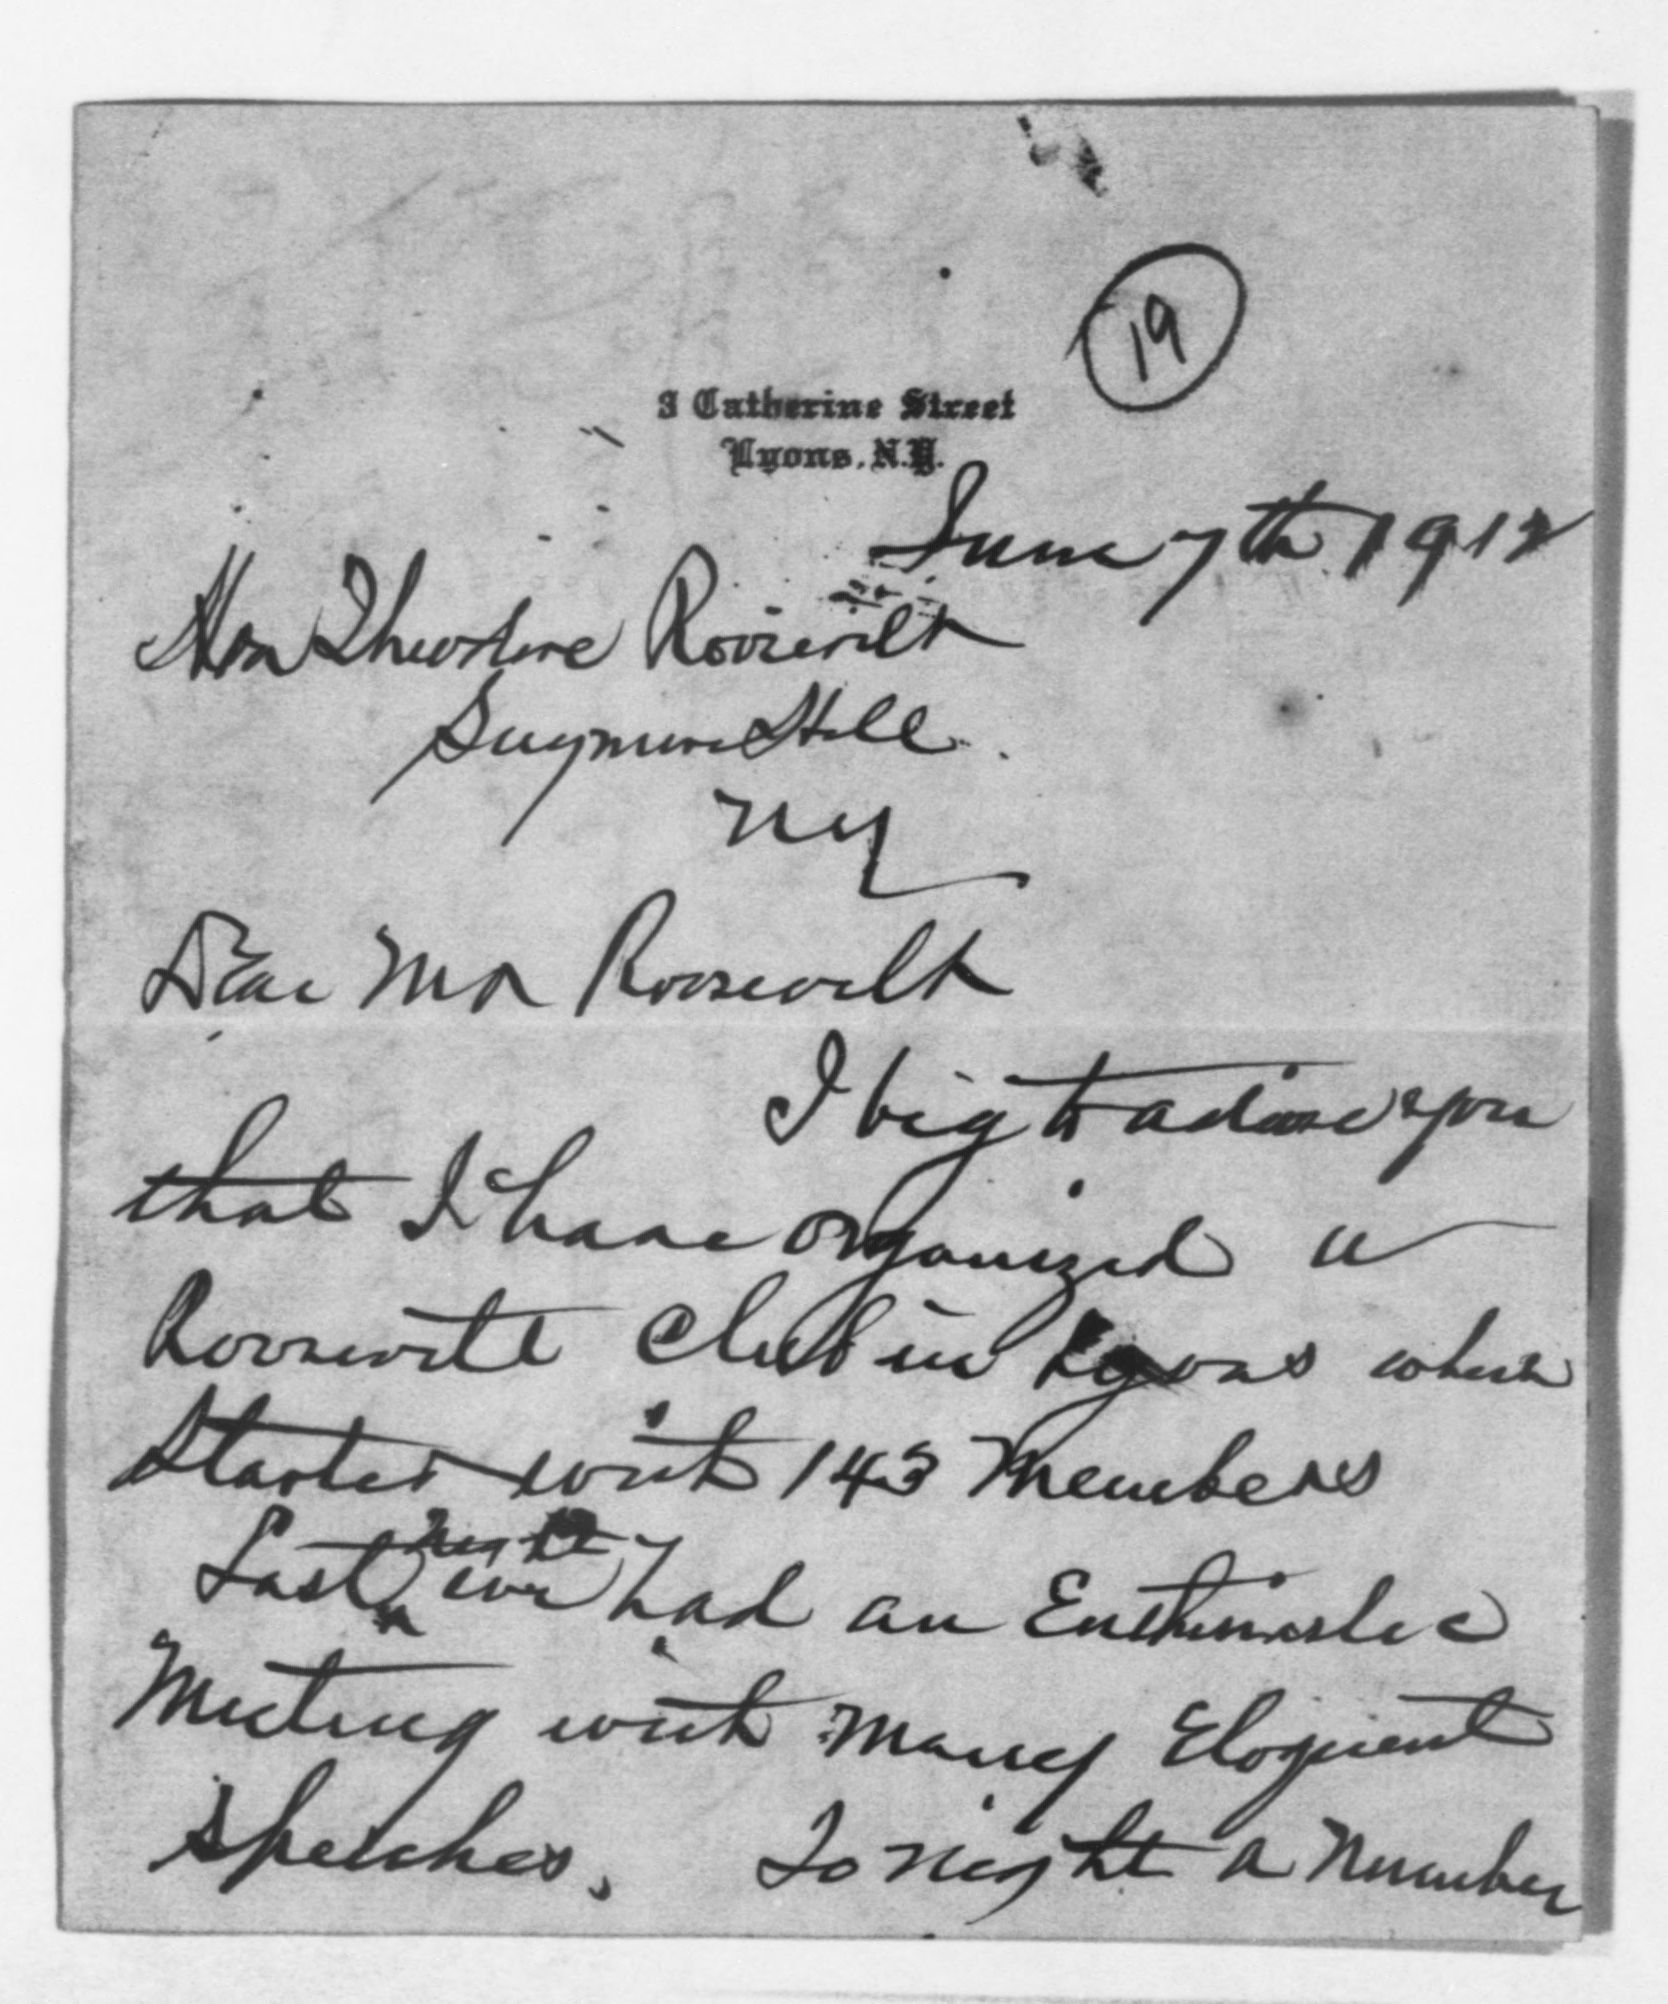 19
3 Catherine Street
Lyons, N.Y.
June 7th 1912
Hon Theodore Roosevelt
Sagamore Hill
NY
Dear Mr Roosevelt
I beg to advise you
that I have organized a
Roosevelt Club in Lyons which
started with 143 Members
night
Last we had an Enthusiastic
Meeting with Many Eloquent
speeches. To night a Number